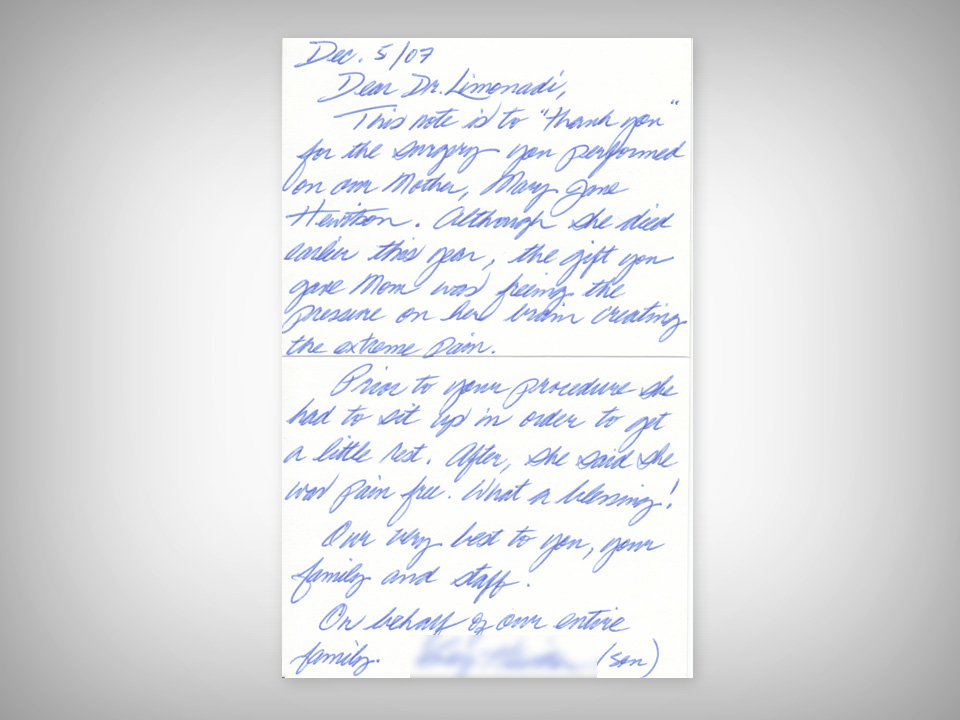 Dec. 5/07
Dear Dr. Limonadi,
This note is to "thank you"
for the surgery you performed
on our Mother, Mary Jane
Hewitson. Although she died
earlier this year, the gift you
gave Mom was freeing the
pressure on her brain creating
the extreme pain.
Prior to your procedure she
had to sit up in order to get
a little rest. After, she said she
was pain free. What a blessing!
Our very best to you, your
family and staff.
On behalf of our entire
family. (son)